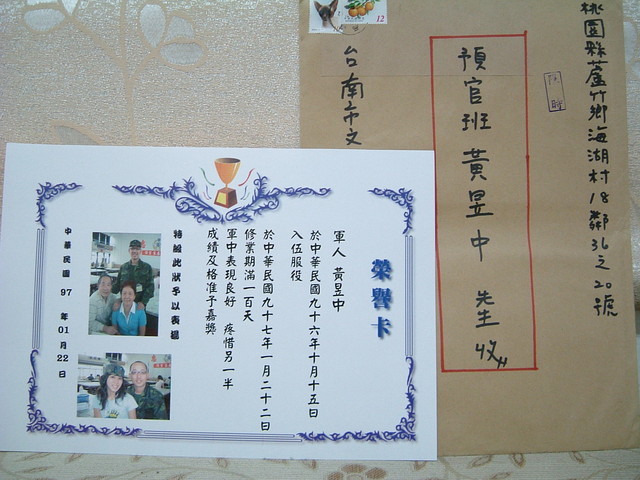 桃園縣蘆竹鄉海湖村18鄰36之20號
預官班 黃昱中 先生 收
台南市文
12
榮譽卡
軍人 黃昱中
於中華民國九十六年十月十五日
入伍服役
於中華民國九十七年一月二十二日
修業期滿一百天
軍中表現良好 疼惜另一半
成績及格准予嘉獎
特給此狀予以表揚
中華民國 97 年 01 月 22 日